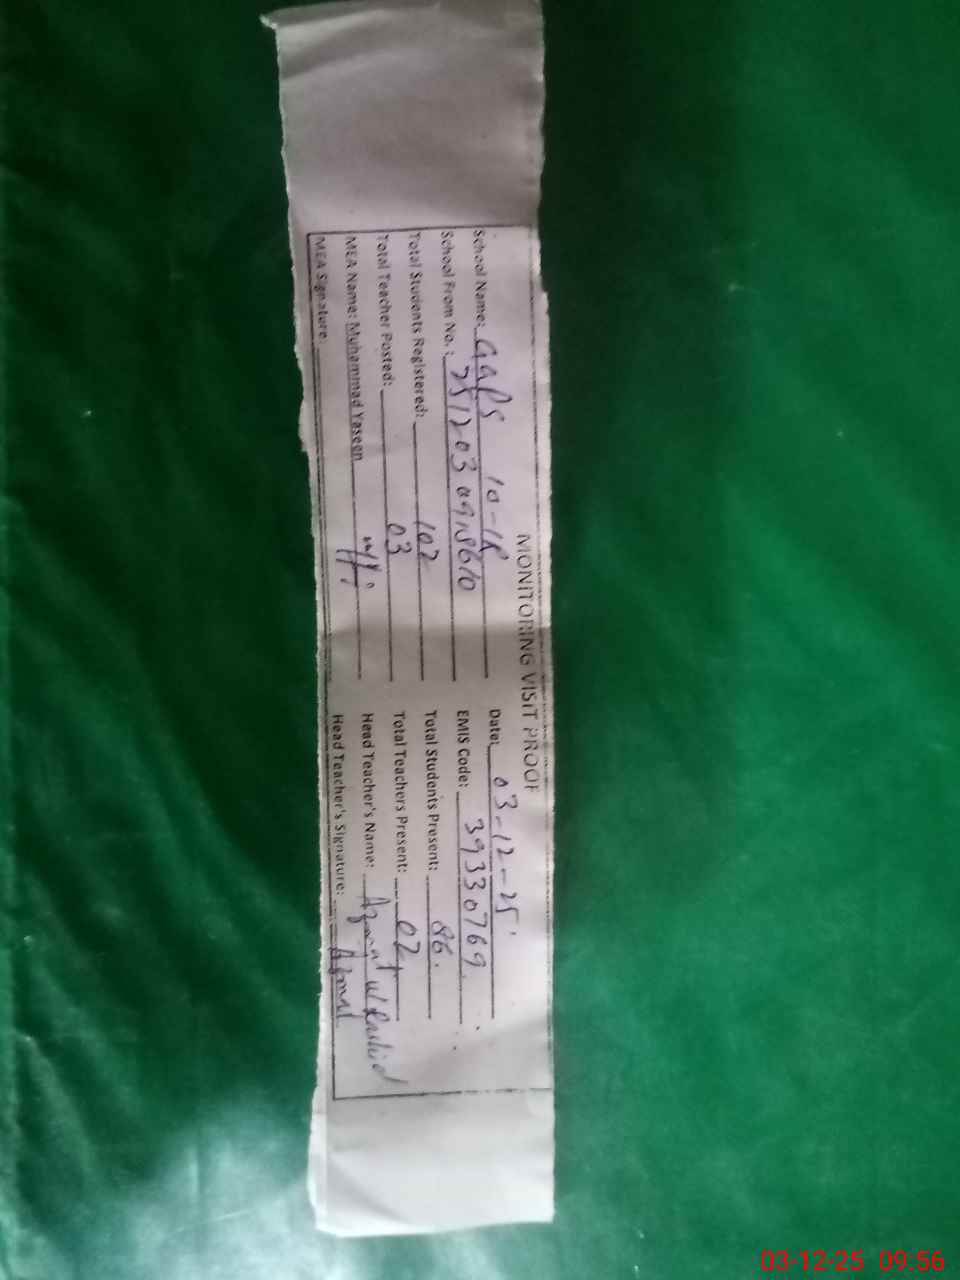 MONITORING VISIT PROOF
School Name: GGPS 10-1R Date: 03-12-25
School From No.: EMIS Code: 39330769
Total Students Registered: 102 Total Students Present: 86
Total Teacher Posted: 03 Total Teachers Present: 02
MEA Name: Muhammad Yaseen Head Teacher's Name: Azmat ul Rashid
MEA Signature: Head Teacher's Signature: Azmat
03-12-25 09:56